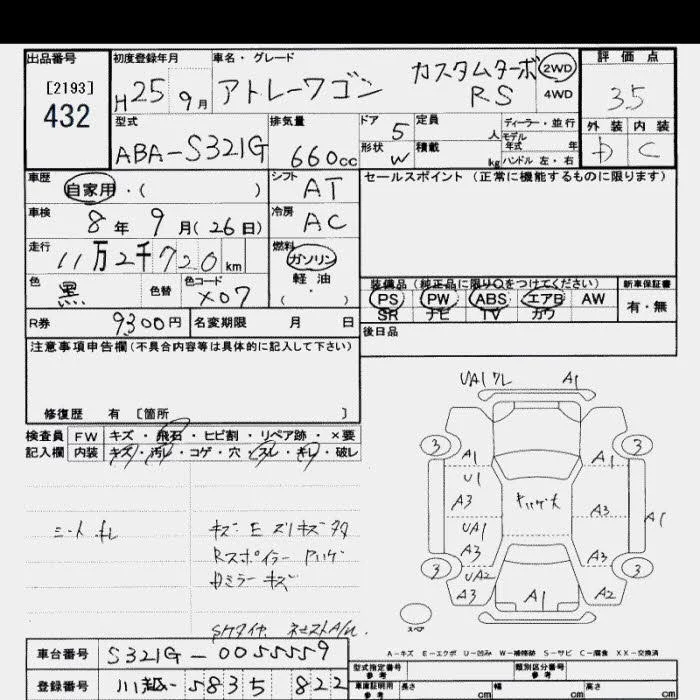 出品番号 [2193] 432
初度登録年月 H25年9月
車名・グレード アトレーワゴン カスタムターボ RS
2WD 4WD
評価点 3.5
外装 D 内装 C
型式 ABA-S321G
排気量 660cc
ドア 5
形状 W
定員 人
積載 kg
ディーラー・並行
モデル年式 年
ハンドル 左・右
車歴 自家用・( )
シフト AT
セールスポイント(正常に機能するものに限ります)
車検 8年9月(26日)
冷房 AC
走行 11万2千720km
燃料 ガソリン 軽油 ( ・ )
色 黒 色替
色コード X07
装備品(純正品に限り○をつけてください)
PS PW ABS エアB AW
SR ナビ TV カワ
新車保証書 有・無
R券 9300円
名変期限 月 日
後日品
注意事項申告欄(不具合内容等は具体的に記入して下さい)
修復歴 有 [箇所 ]
検査員記入欄
FW キズ・飛石・ヒビ割・リペア跡・×要
内装 キズ・汚レ・コゲ・穴・スレ・キレ・破レ
UA1 ワレ A1
3 3
A1 A1
U1
キハゲ大
A3 A3
UA1 A1
A3 A3
3 3
UA2
A3 A1 A2
スペア
シート キレ
キズ E スリキズ
Rスポイラー ハゲ
ミラー キズ
A-キズ E-エクボ U-凹み W-補修跡 S-サビ C-腐食 XX-交換済
車台番号 S321G-0055559
登録番号 川越-5835 822
型式指定番号 参考
類別区分番号 参考
車庫証明用 参考 長さ cm 幅 cm 高さ cm